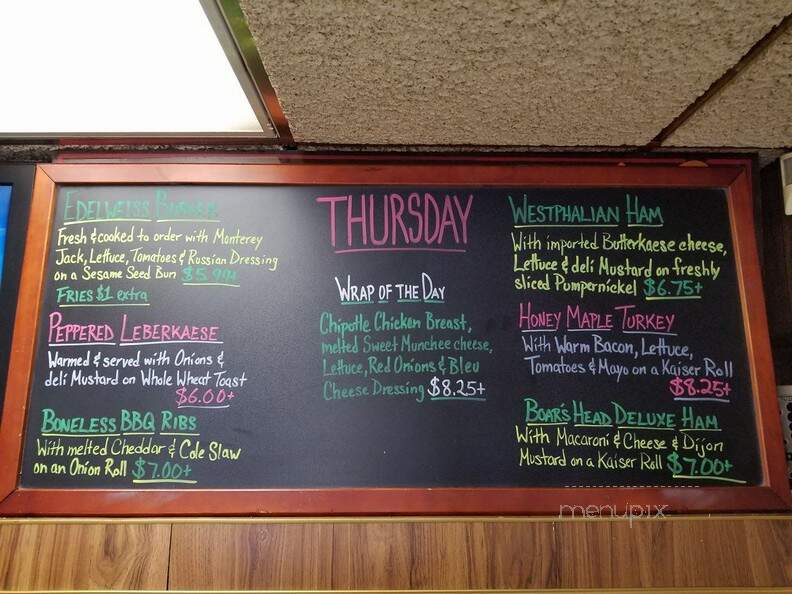 EDELWEISS BURGER
Fresh & cooked to order with Monterey
Jack, Lettuce, Tomatoes & Russian Dressing
on a Sesame Seed Bun $5.99+
FRIES $1 extra
PEPPERED LEBERKAESE
Warmed & served with Onions &
deli Mustard on Whole Wheat Toast
$6.00+
BONELESS BBQ RIBS
With melted Cheddar & Cole Slaw
on an Onion Roll $7.00+
THURSDAY
WRAP OF THE DAY
Chipotle Chicken Breast,
melted Sweet Munchee cheese,
Lettuce, Red Onions & Bleu
Cheese Dressing $8.25+
WESTPHALIAN HAM
With imported Butterkaese cheese,
Lettuce & deli Mustard on freshly
sliced Pumpernickel $6.75+
HONEY MAPLE TURKEY
With Warm Bacon, Lettuce,
Tomatoes & Mayo on a Kaiser Roll
$8.25+
BOAR'S HEAD DELUXE HAM
With Macaroni & Cheese & Dijon
Mustard on a Kaiser Roll $7.00+
menupix